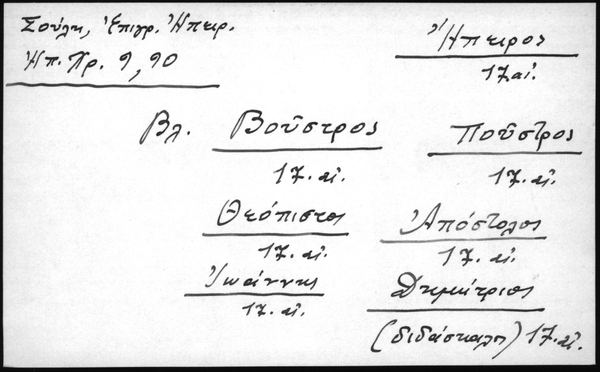 Σούλη, Ἐπιγρ. Ἠπειρ.
Ἠπ. Χρ. 9, 90
Ἤπειρος
17 αἰ.
Βλ. Βοῦστρος Ποῦστρος
17. αἰ. 17. αἰ.
Θεόπιστος Ἀπόστολος
17. αἰ. 17. αἰ.
Ἰωάννης Δημήτριος
17. αἰ. (διδάσκαλος) 17. αἰ.